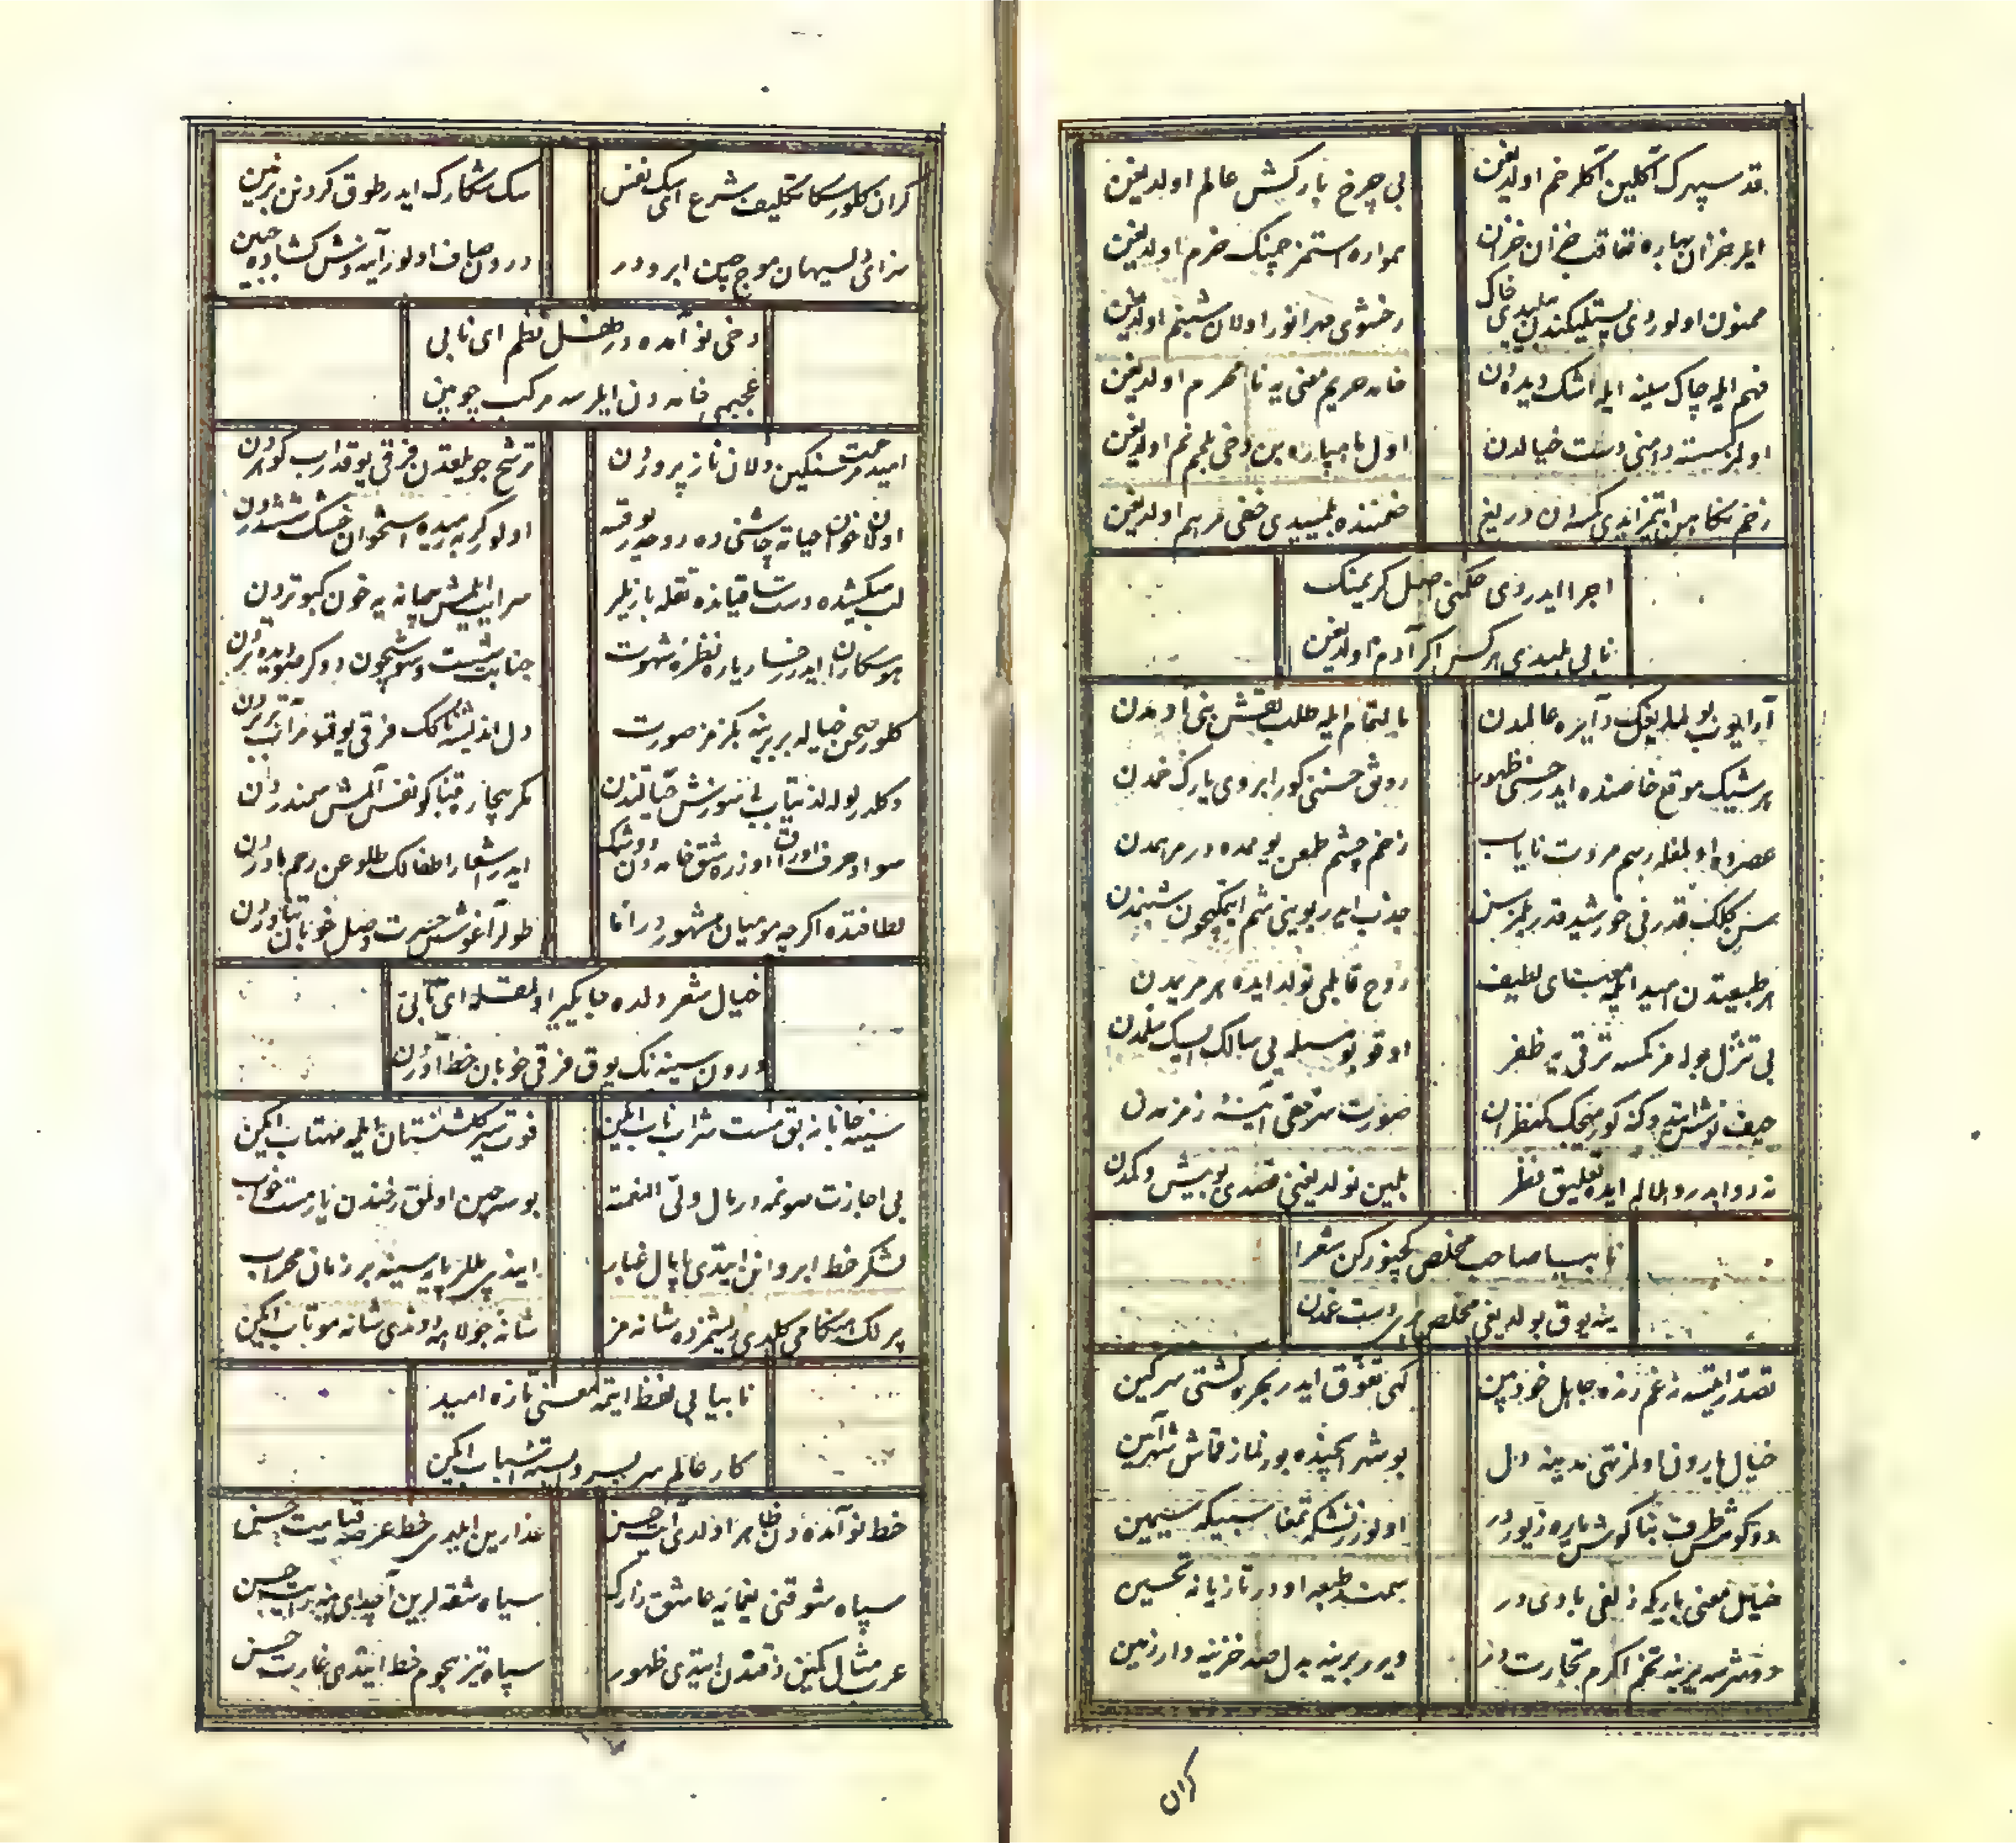 قد سپهرك آكلین آكلر خم اولدیغین
بی چرخ باركش عالم اولدیغین
ایلر خزان بهاره تعاقب خزان خزان
همواره استمز چمنك خرم اولدیغین
ممنون اولوردی پستلیكندن بیلیدی خاك
رخشوی مهر انور اولان شبنم اولدیغین
فهم ایله چاك سینه ایله اشك دیده دن
خامه حریم معنی یه نا محرم اولدیغین
اولمز كسسته دامنی دست خیالدن
اول ماهپاره بن دخی بلمم نم اولدیغین
زخم نكاهین ایتمز ایدی كمسه دن دریغ
ضمننده بلسیدی خفی مرهم اولدیغین
اجرا ایدردی حكمنی اصل كریمنك
نابی بلیدی هر كس اكر آدم اولدیغین
آرا یوب بولمه دیغك دایره عالمدن
یا لتمام ایله طلب نقش بنی آدمدن
هر شیك موقع خاصنده ایدر حسنی ظهور
روش حسننی كور ابروی یارك خمدن
عصرده اولمغله رسم مروت نایاب
زخم چشم طمعن یومده در مرهمدن
سن كلك قدرنی خورشید قدر بلمزسن
جذب ایدر بوینی شم ایتمكیچون شبنمدن
هر طبیعتدن امید ایلمه معنای لطیف
روح قابلمی تولد ایده هر مریمدن
بی تنزل بوله مز كمسه ترقی یه ظفر
اوقو بو مسئله یی سالك ایسك سلمدن
حیف نوش ایتدوكنه كورمیجك كمنظران
صورت سر خفی آینۀ زمزمدن
نه روا بدر دو المالم ایده تعلیق نظر
بلمین نولدیغنی قصدی بو بیش و كمدن
نابیا صاحب مخلص كچینوركن شعرا
ینه یوق بولدیغی مخلص بری دست غمدن
تصدر ایتسه نه غم رنده جاهل خودبین
كهی تفوق ایدر بحره كشتی سركین
خیال یارون اولمز تهی مدینه دل
بو شهر ایچنده بوزلماز قماش شهر آیین
دوكوش طرف بناكوش یاره زیوردر
اولور زر تمغا سبیكه سیمین
خیال معنی باریكه زلفی بادی در
سمند طبعه اودر تازیانه تحسین
دوشرسه یرینه تخم اكرم تجارتدر
ویرر برینه بدل صد خزینه وار زمین
كران
كران كلورسكا تكلیف شرع ای سك نفس
سك شكارك ایدر طوق كردنن تزیین
سزای دلسیهان موج چین ابرودر
درون صاف اولور آینه وش كشاده جبین
دخی نو آمده در طفل نظم ای نابی
عجبمی خامه دن ایلرسه مركب چوبین
امید مرحمت سنكین دلان ناز پروردن
ترشح جویلقدن فرقی یوقدر آب كوهردن
اولان خوان حیاته چاشنی ده روحدر یوقسه
اولور كربه رمیده استخوان خشك ششدردن
لب میكشده دست ساقیانده نقله بازیلر
سرایت ایلمش پیمانه یه خون كبوتردن
هوسكاران ایدر رخسار یاره نظره شهوت
جنابت شست و شویچون
كلور صحن خیاله بربرینه بكزمز صورت
دل اندیشه نك فرقی یوق مرآت
دكلدر بوله لذتیاب بی سوزش حیاتندن
مكر بیچاره پنبا كو نفس آلمش سمندردن
سواد حرف اوراق اوزره مشق خامه دن دوشمك
ایدر اشعار اطفالك طلوعن رحم مادردن
لطافتده اكرچه مومیان مشهوردر اما
طولر آغوش حسرت وصل خوبان
خیال شعر دلده جایكیر اولمغله ای نابی
درون سینه نك یوق فرقی خوبان خط آوردن
سینه جانانه یق مست شراب ناب ایكین
فوت سیر كلشنستان ایلمه مهتاب ایكین
بی اجازت صونمه در بال ولی النعمته
بوسه چین اولمق رخندن یار مست خواب
لشكر خط ابروانن ایتدی پامال غبار
ایندی یللر پایه سینه بر زمان محراب
پرلك هنكامی كلدی ریشمزده شانه مز
شانه جولاهه دوندی شانه موتاب ایكین
نابیا بی لفظ ایتمه معنی تازه امید
كار عالم سر بسر وابسته اسباب ایكین
خط نو آمده دن ظاهر اولدی آیت حسن
عذارین ایلدی خط عرصه قیامت حسن
سپاه شوقنی یغمایه عاشق زارك
سیاه شقه لرین آچدی ینه رایت حسن
عرب مثال كمین ذقندن ایتدی ظهور
سپاه تیز هجوم خط ایتدی غارت حسن